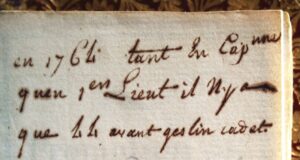 en 1764 tant En Capnne
quen 1er Lieut il Nya
que 44 avant geslin cadet.